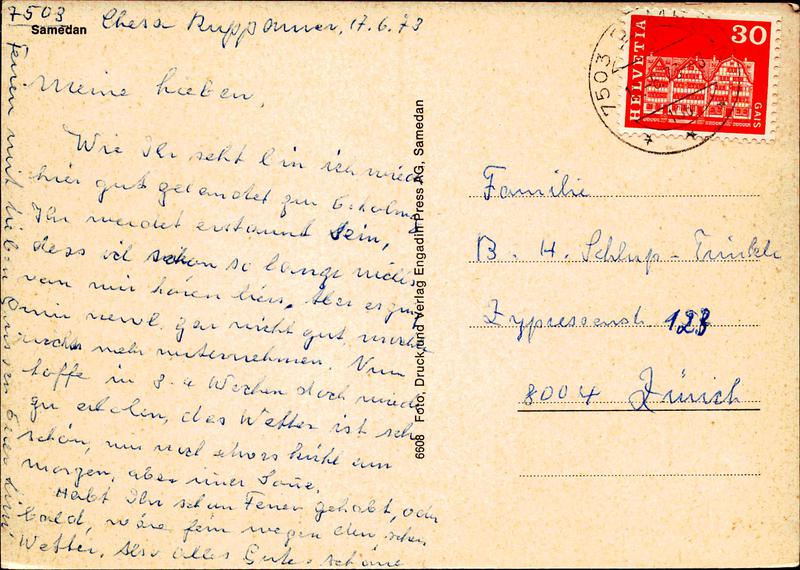 7503
Samedan Chesa Ruppanner, 17.6.73
Meine Lieben,
Wie Ihr seht bin ich wieder
hier gut gelandet zur Erholung
Ihr werdet erstaunt sein,
dass ich schon so lange nichts
von mir hören liess. Aber es ging
mir nervl. gar nicht gut, mochte
nichts mehr unternehmen. Nun
hoffe in 3-4 Wochen doch wieder
zu erholen, das Wetter ist sehr
schön, nur noch etwas kühl am
morgen, aber immer Sonne.
Habt Ihr schon Ferien gehabt, oder
bald, wäre fein wegen dem schön
Wetter. Also alles Gute schöne
Ferien mit lieben Grüssen Eure
6608 Foto, Druck und Verlag Engadin Press AG, Samedan
HELVETIA
30
GAIS
7503
Familie
B. H. Schlup-
Zypressenstr 123
8004 Zürich